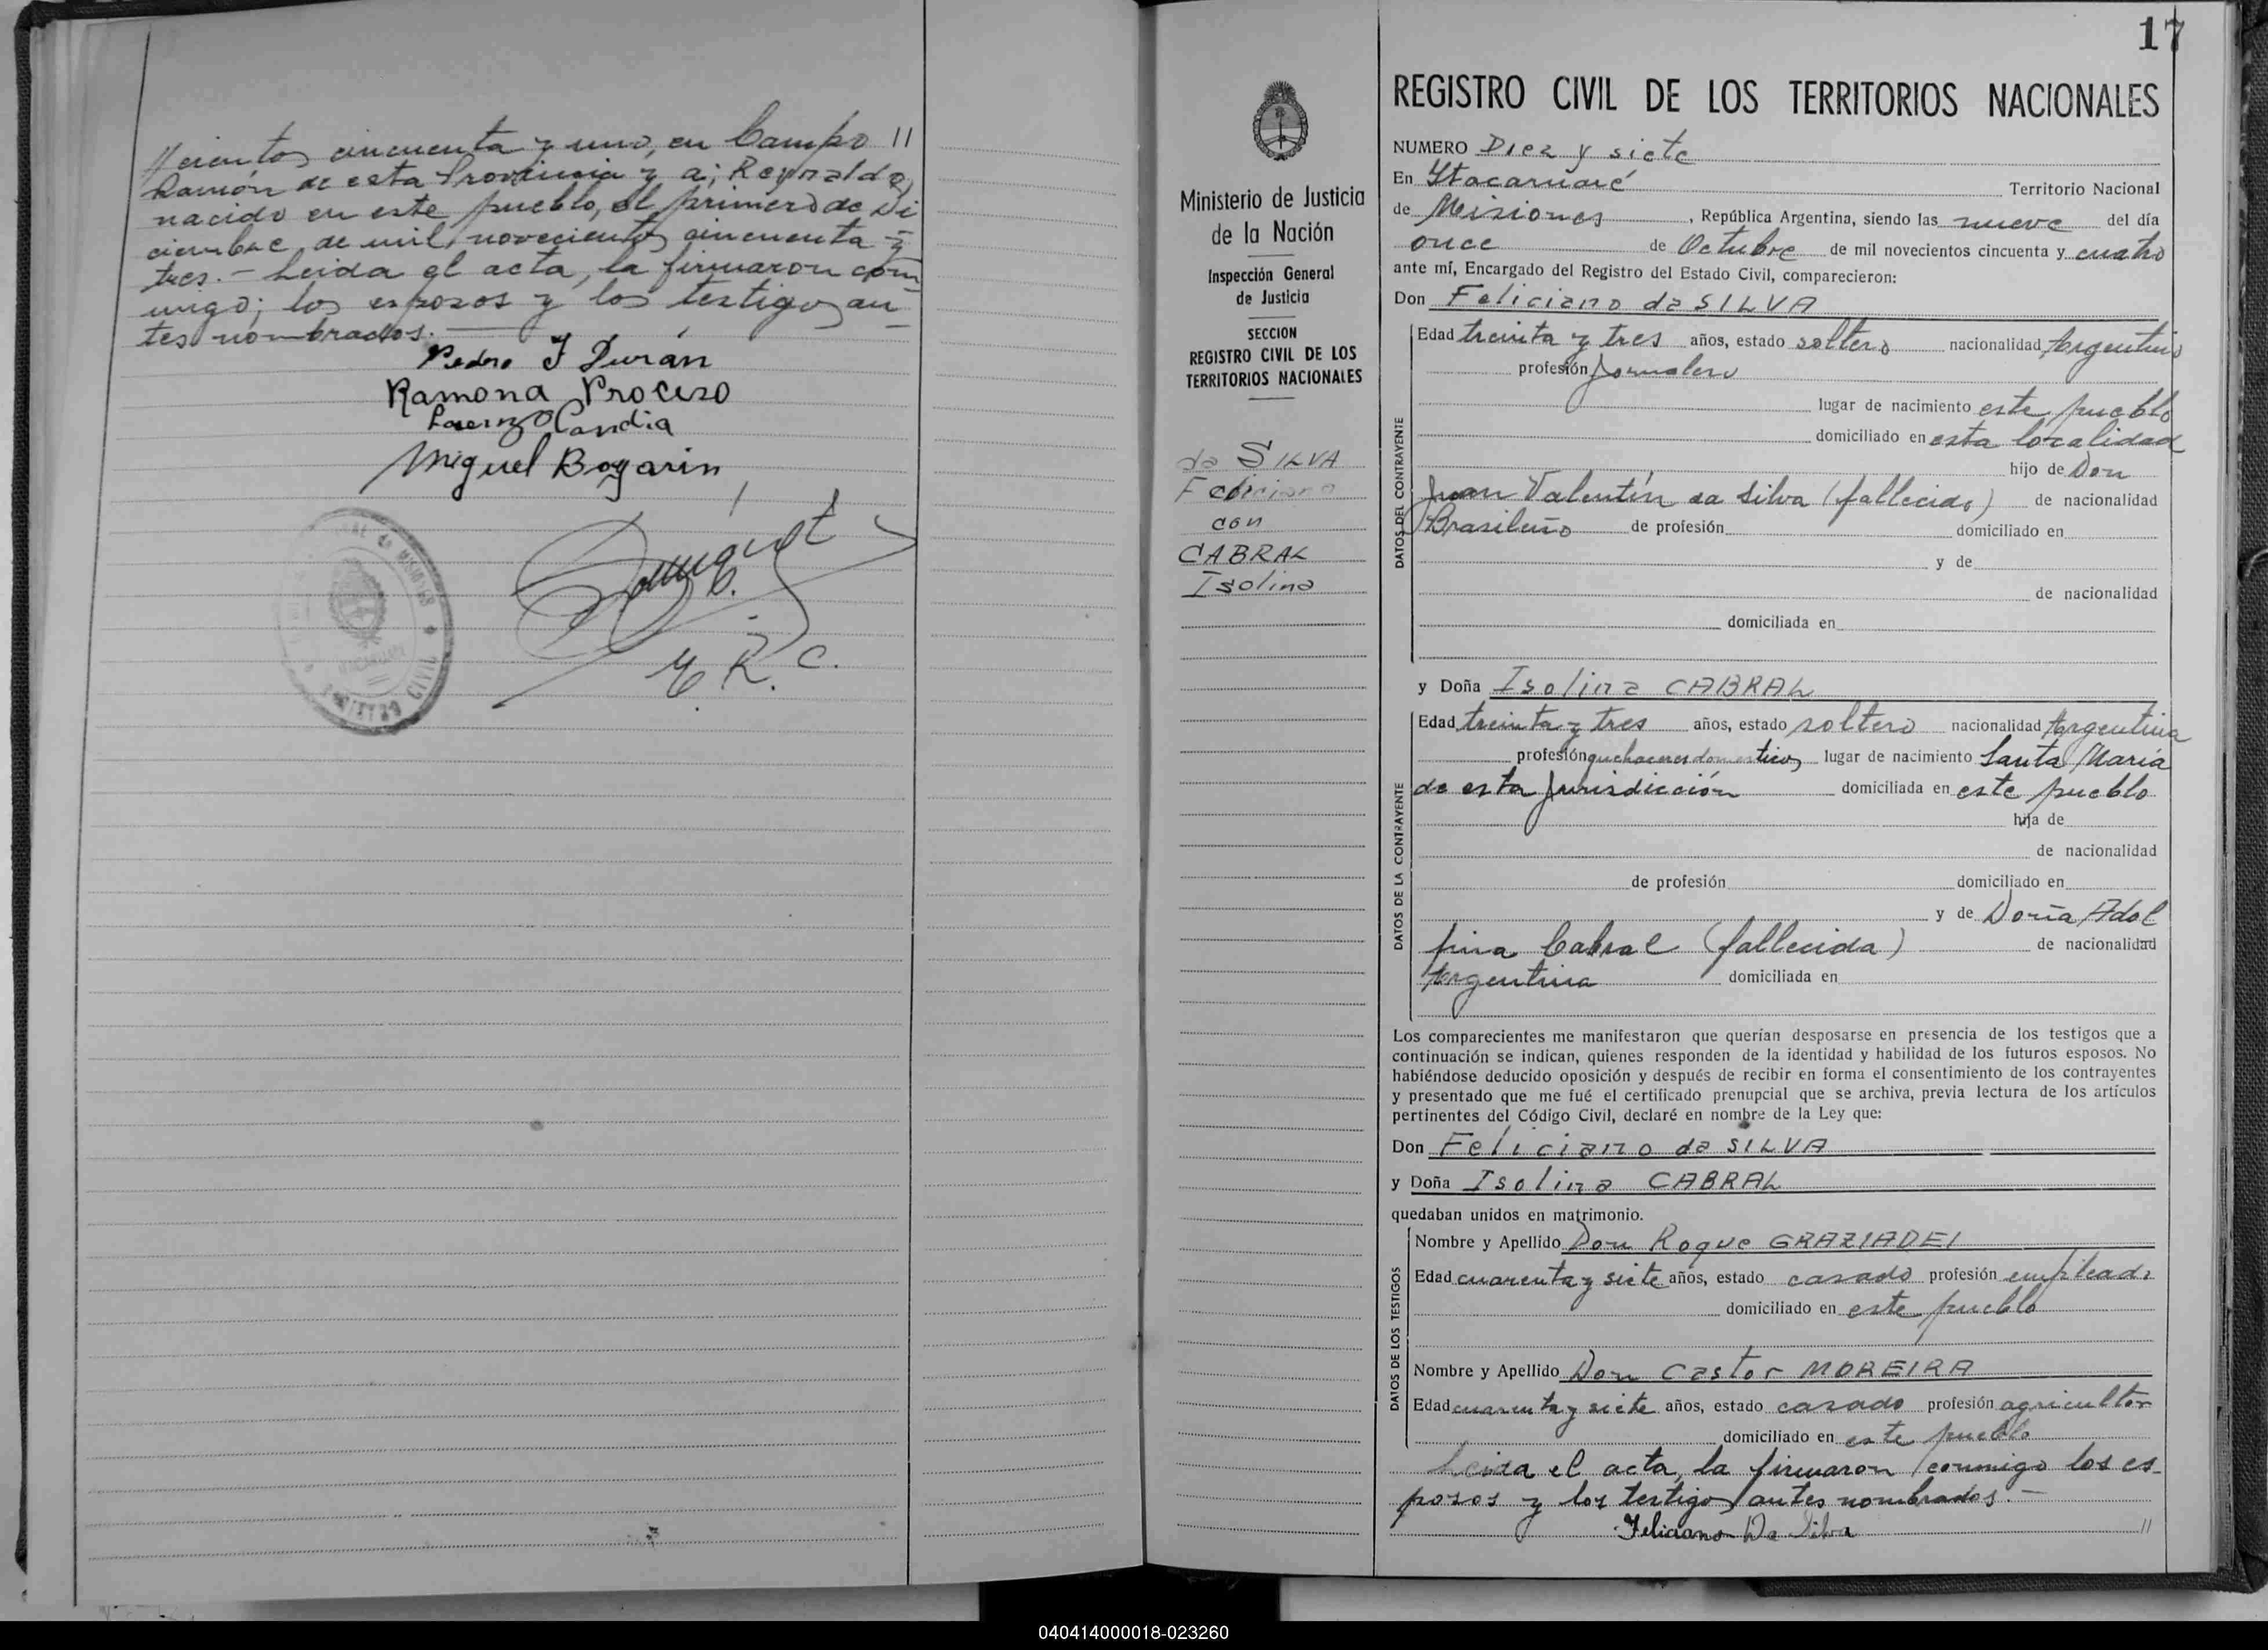 //cientos cincuenta y uno, en Campo //
Ramón de esta Provincia y a; Reynaldo,
nacido en este pueblo, el primero de Di
ciembre, de mil novecientos cincuenta y
tres.- Leida el acta, la firmaron con-
migo; los esposos y los testigos an-
tes nombrados.
Pedro I Durán
Ramona Proceso
Lorenzo Candia
Miguel Bogarin
E. R. C.
REGISTRO CIVIL
17
Ministerio de Justicia
de la Nación
Inspección General
de Justicia
SECCION
REGISTRO CIVIL DE LOS
TERRITORIOS NACIONALES
da SILVA
Feliciano
con
CABRAL
Isolina
REGISTRO CIVIL DE LOS TERRITORIOS NACIONALES
NUMERO Diez y siete
En Itacaruaré Territorio Nacional
de Misiones, República Argentina, siendo las nueve del día
once de Octubre de mil novecientos cincuenta y cuatro
ante mí, Encargado del Registro del Estado Civil, comparecieron:
Don Feliciano da SILVA
DATOS DEL CONTRAYENTE
Edad treinta y tres años, estado soltero nacionalidad Argentino
profesión Jornalero
lugar de nacimiento este pueblo
domiciliado en esta localidad
hijo de Don
Juan Valentín da Silva (fallecido) de nacionalidad
Brasileño de profesión domiciliado en
y de
de nacionalidad
domiciliada en
y Doña Isolina CABRAL
DATOS DE LA CONTRAYENTE
Edad treinta y tres años, estado soltero nacionalidad Argentina
profesión quehaceres domesticos lugar de nacimiento Santa María
de esta Jurisdicción domiciliada en este pueblo
hija de
de nacionalidad
de profesión domiciliado en
y de Doña Adol
fina Cabral (fallecida) de nacionalidad
Argentina domiciliada en
Los comparecientes me manifestaron que querían desposarse en presencia de los testigos que a
continuación se indican, quienes responden de la identidad y habilidad de los futuros esposos. No
habiéndose deducido oposición y después de recibir en forma el consentimiento de los contrayentes
y presentado que me fué el certificado prenupcial que se archiva, previa lectura de los artículos
pertinentes del Código Civil, declaré en nombre de la Ley que:
Don Feliciano da SILVA
y Doña Isolina CABRAL
quedaban unidos en matrimonio.
DATOS DE LOS TESTIGOS
Nombre y Apellido Don Roque GRAZIADEI
Edad cuarenta y siete años, estado casado profesión empleado
domiciliado en este pueblo
Nombre y Apellido Don Castor MOREIRA
Edad cuarenta y siete años, estado casado profesión agricultor
domiciliado en este pueblo
Leida el acta, la firmaron conmigo los es-
posos y los testigos antes nombrados.-
Feliciano Da Silva //
040414000018-023260